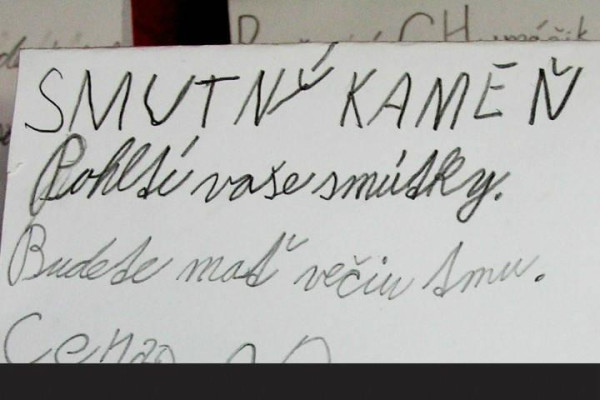 SMUTNÝ KAMEŇ
Pohltí vaše smútky.
Budete mať večiu tmu.